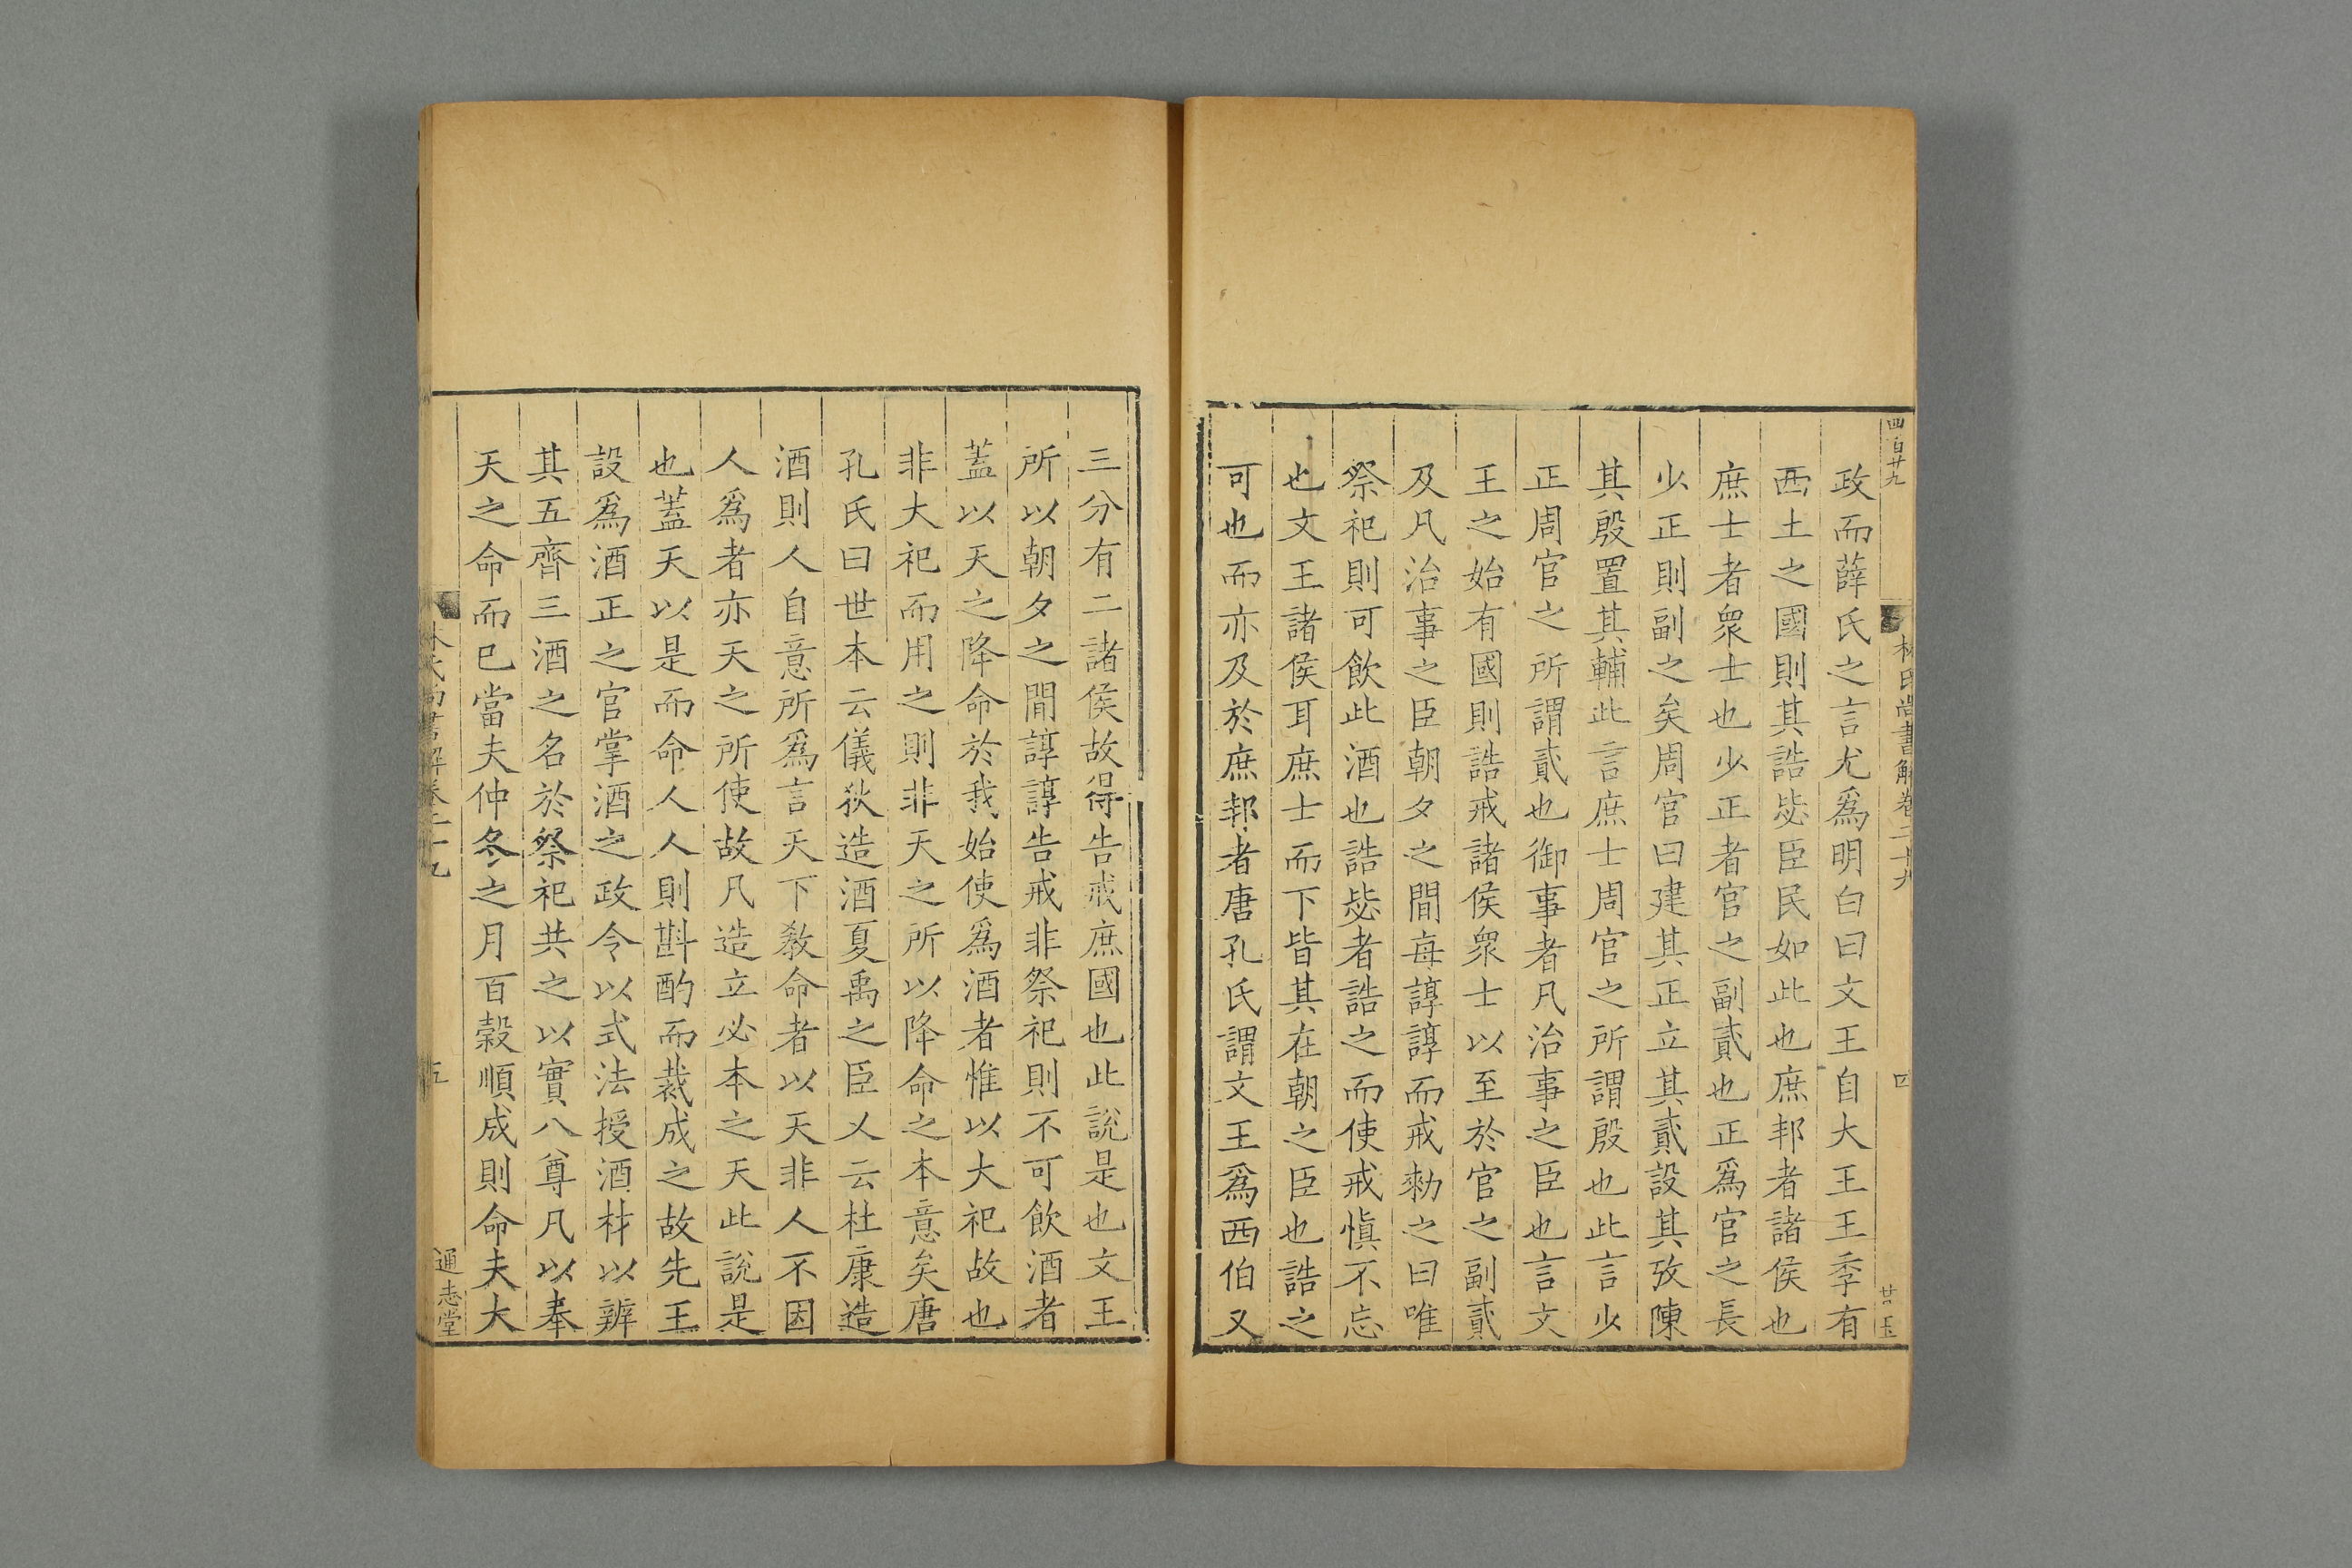 四百廿九
林氏尚書解卷二十九
四
廿玉
政而薛氏之言尤爲明白曰文王自大王王季有
西土之國則其誥毖臣民如此也庶邦者諸侯也
庶士者衆士也少正者官之副貳也正爲官之長
少正則副之矣周官曰建其正立其貳設其攷陳
其殷置其輔此言庶士周官之所謂殷也此言少
正周官之所謂貳也御事者凡治事之臣也言文
王之始有國則誥戒諸侯衆士以至於官之副貳
及凡治事之臣朝夕之間每諄諄而戒勑之曰唯
祭祀則可飲此酒也誥毖者誥之而使戒愼不忘
也文王諸侯耳庶士而下皆其在朝之臣也誥之
可也而亦及於庶邦者唐孔氏謂文王爲西伯又
三分有二諸侯故得告戒庶國也此說是也文王
所以朝夕之間諄諄告戒非祭祀則不可飲酒者
蓋以天之降命於我始使爲酒者惟以大祀故也
非大祀而用之則非天之所以降命之本意矣唐
孔氏曰世本云儀狄造酒夏禹之臣又云杜康造
酒則人自意所爲言天下教命者以天非人不因
人爲者亦天之所使故凡造立必本之天此說是
也蓋天以是而命人人則斟酌而裁成之故先王
設爲酒正之官掌酒之政令以式法授酒材以辨
其五齊三酒之名於祭祀共之以實八尊凡以奉
天之命而已當夫仲冬之月百穀順成則命夫大
林氏尚書解卷二十九
五
通志堂